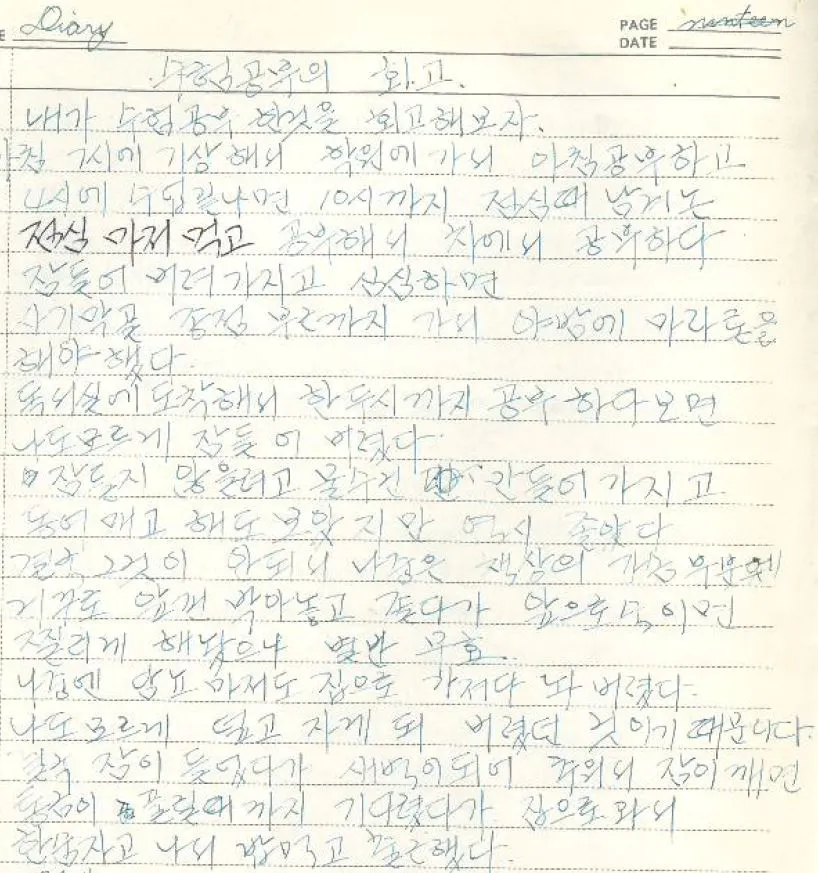 Diary
PAGE nineteen
DATE
수험공부의 회고.
내가 수험공부 한것을 회고해보자.
아침 7시에 기상해서 학원에 가서 아침공부하고
4시에 수업끝나면 10시까지 점심때 남겨논
점심 까지 먹고 공부해서 차에서 공부하다
잠들어 버려가지고 심심하면
사기막골 종점 부근까지 가서 야밤에 마라톤을
해야 했다.
독서실에 도착해서 한두시까지 공부하다보면
나도모르게 잠들어 버렸다.
잠들지 않을려고 물수건 만들어 가지고
동여매고 해도 보았지만 역시 졸았다
결국 그것이 안되서 나중은 책상의 가장 부분에
거꾸로 압핀 박아놓고 졸다가 앞으로 숙이면
찔리게 해놨으나 별반 무효.
나중엔 압핀 마저도 집으로 가져다 놔 버렸다.
나도모르게 떼고 자게 되 버렸던 것이기 때문니다.
결국 잠이 들었다가 새벽이되어 추워서 잠이 깨면
통금이 풀릴때까지 기다렸다가 집으로 와서
한숨자고 나서 밥먹고 출근했다.